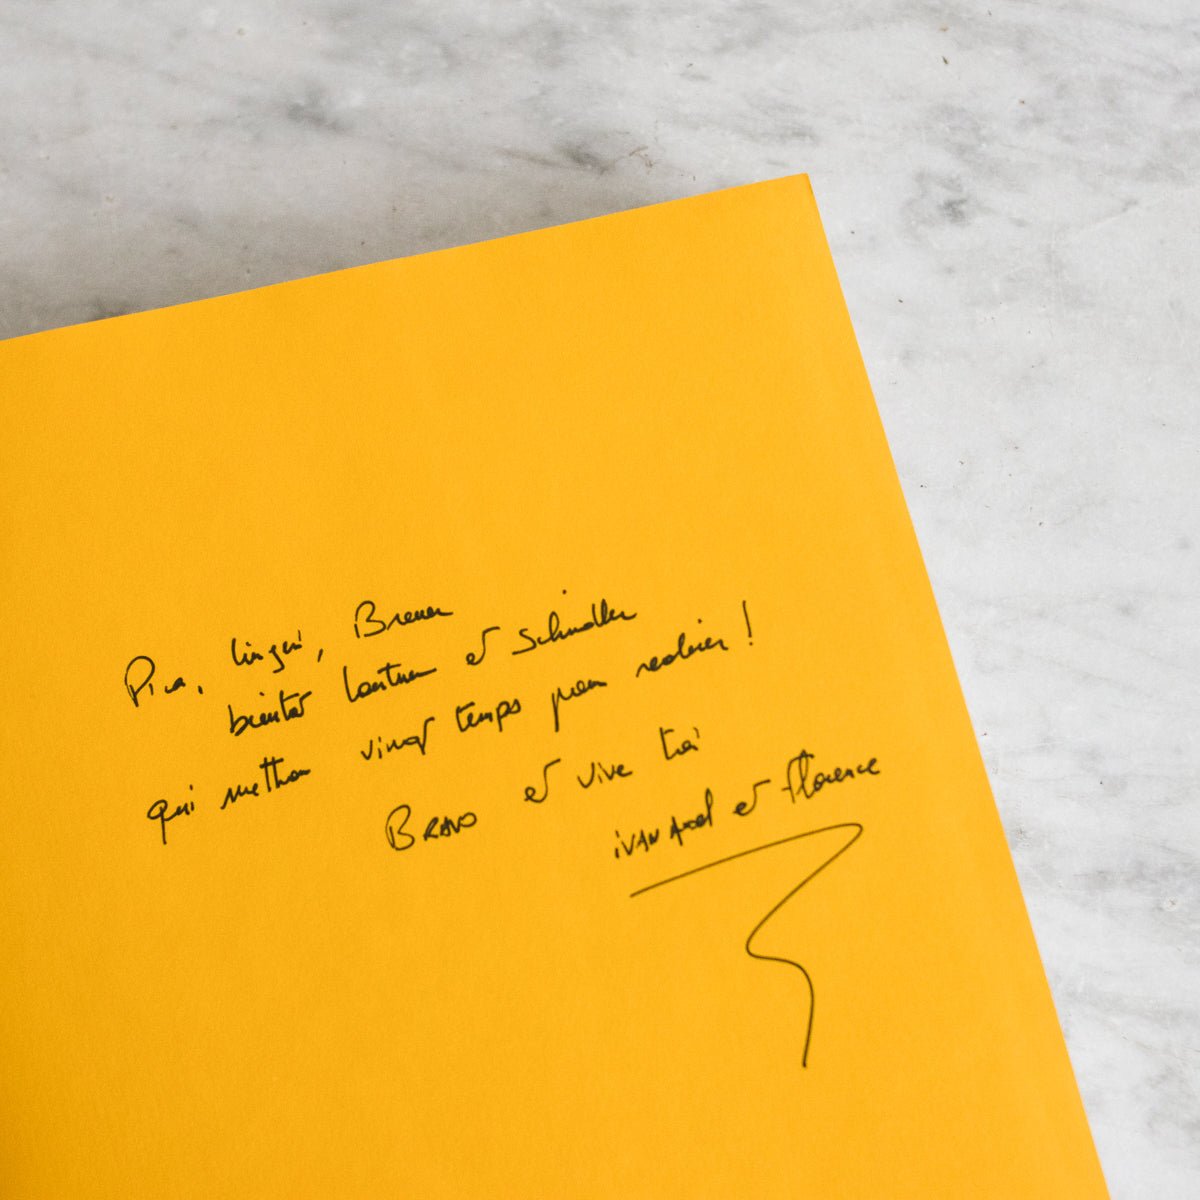 Pira, Lingeri, Breuer
bientôt Lautner et Schindler
qui mettra vingt temps pour realiser !
BRAVO et vive toi
iVAN Axel et Florence